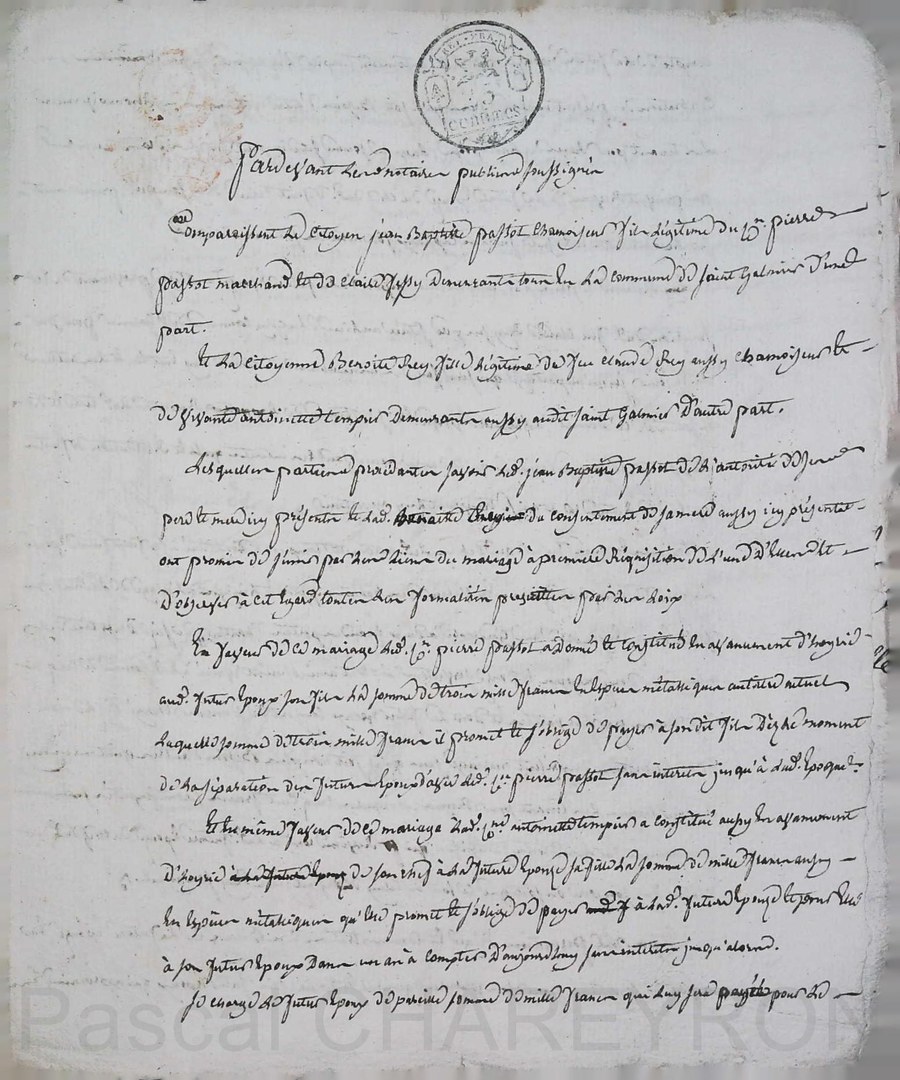 REP. FRA.
Pardevant le notaire public soussigné
Comparaissant le Citoyen jean Baptiste passot chamoiseur fils légitime du Cn. pierre
passot marchand et de claire demeurants tous en la commune de saint Galmier d'une
part.
Et la Citoyenne Benoite Rey fille légitime de feu claude Rey aussy chamoiseur et
de vivante antoinette tempier demeurante aussy audit saint Galmier d'autre part.
Lesquelles parties procédantes savoir led. jean Baptiste passot de l'autorité de ses
pere et mere icy présents et lad. Benoite Rey du consentement de sa mere aussy icy présente
ont promis de s'unir par les liens du mariage à premiere Réquisition de l'un d'eux et
d'observer à cet égard toutes les formalités prescrittes par les loix
En faveur de ce mariage led. Cn. pierre passot a donné et constitué en avancement d'hoyrie
aud. futur Epoux son fils la somme de trois mille francs En Espèces métalliques
laquelle somme de trois mille francs il promet et s'oblige de payer à son dit fils Dèz le moment
de la séparation des futurs Epoux d'avec led. Cn. pierre passot sans intérêts jusqu'à lad. Epoque
Et en même faveur de ce mariage lad. Cne. antoinette tempier a constitué aussy En avancement
d'hoyrie à la future Epouse de son chef à la future Epouse sa fille la somme de mille francs aussy
En Espèces métalliques qu'elle promet et s'oblige de payer à lad. future Epouse et pour Elle
à son futur Epoux Dans un an à compter d'aujourd'huy sans intérêts jusqu'alors.
Se charge le futur Epoux de pareille somme de mille francs qui luy sera payée pour le
Pascal CHAREYRON